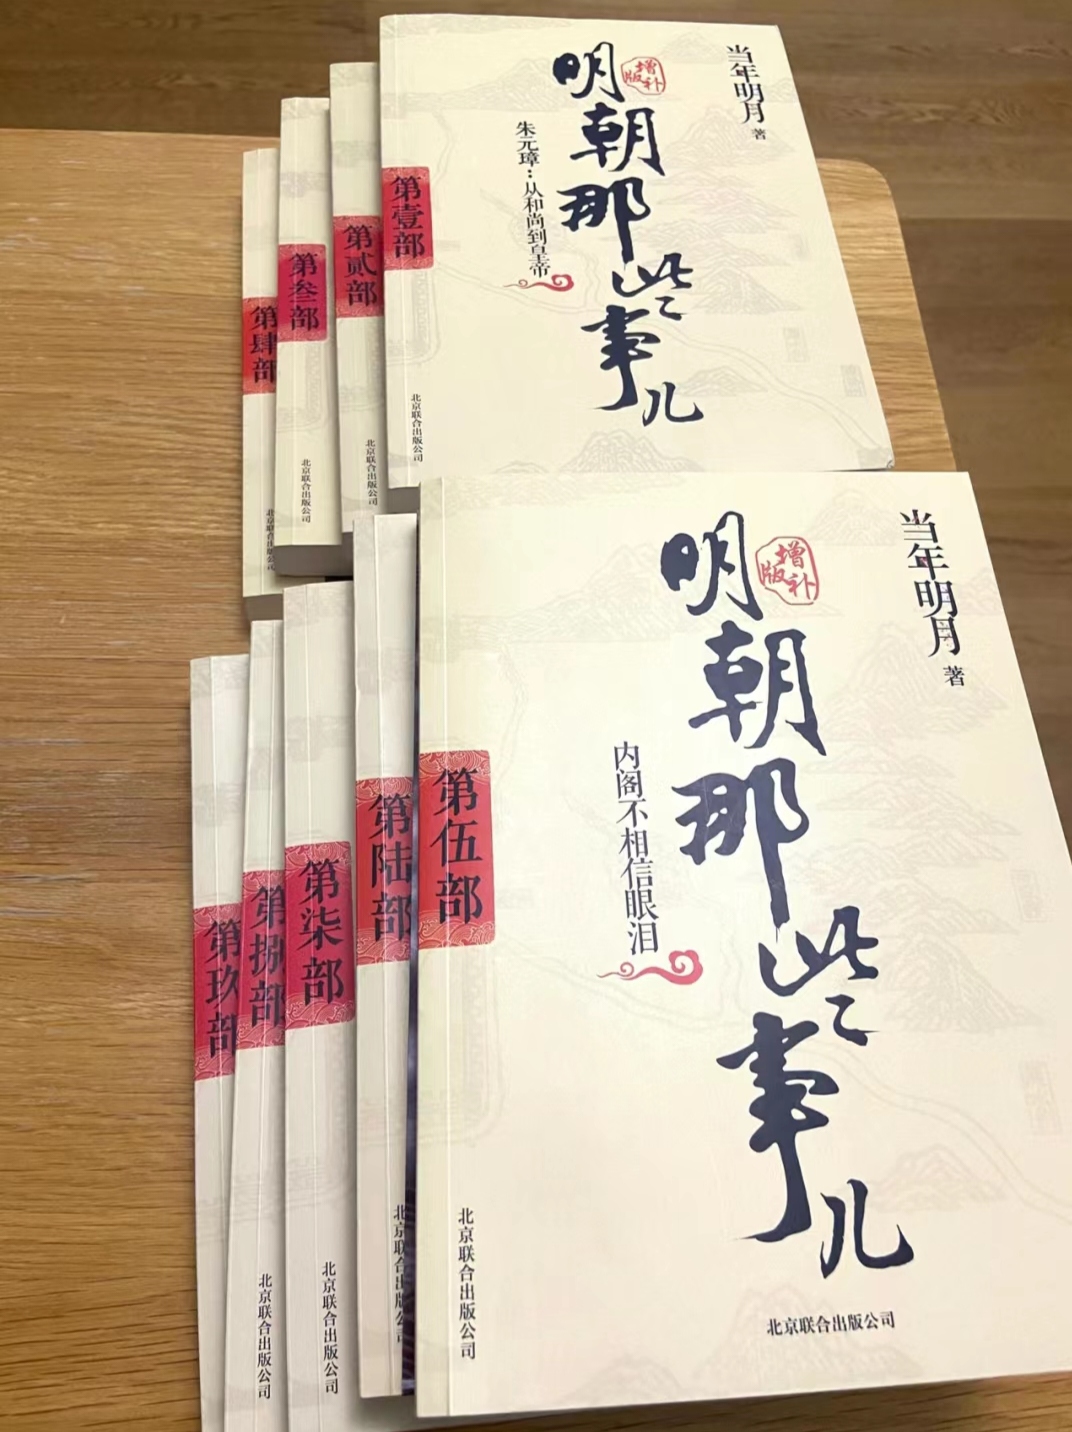 当年明月 著
增补版
明朝那些事儿
朱元璋：从和尚到皇帝
第壹部
北京联合出版公司
第贰部
北京联合出版公司
第叁部
北京联合出版公司
第肆部
北京联合出版公司
当年明月 著
增补版
明朝那些事儿
内阁不相信眼泪
第伍部
北京联合出版公司
北京联合出版公司
第陆部
北京联合出版公司
第柒部
北京联合出版公司
第捌部
北京联合出版公司
第玖部